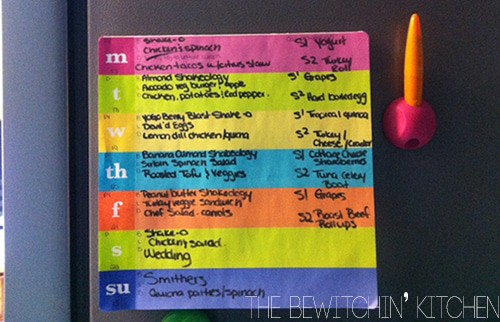 m
Shake-O S1 Yogurt
Chicken & spinach
Chicken tacos w/ citrus slaw S2 Turkey Roll
t
Almond Shakeology S1 Grapes
Avocado veg burger & apple
Chicken, potatoes / red pepper S2 Hard boiled egg
w
Berry Blast Shake-O S1 Tropical quinoa
Devil'd Eggs
Lemon dill chicken/quinoa S2 Turkey/
Cheese/Cracker
th
Banana Almond Shakeology S1 Cottage Cheese
Spinach Salad Strawberries
Roasted Tofu & Veggies S2 Tuna Celery
Boat
f
Peanut butter Shakeology S1 Grapes
Turkey veggie sandwich
Chef Salad - carrots S2 Roast Beef
Roll ups
s
Shake-O
Chicken & salad
Wedding
su
Smithers
Quinoa patties/spinach
THE BEWITCHIN' KITCHEN